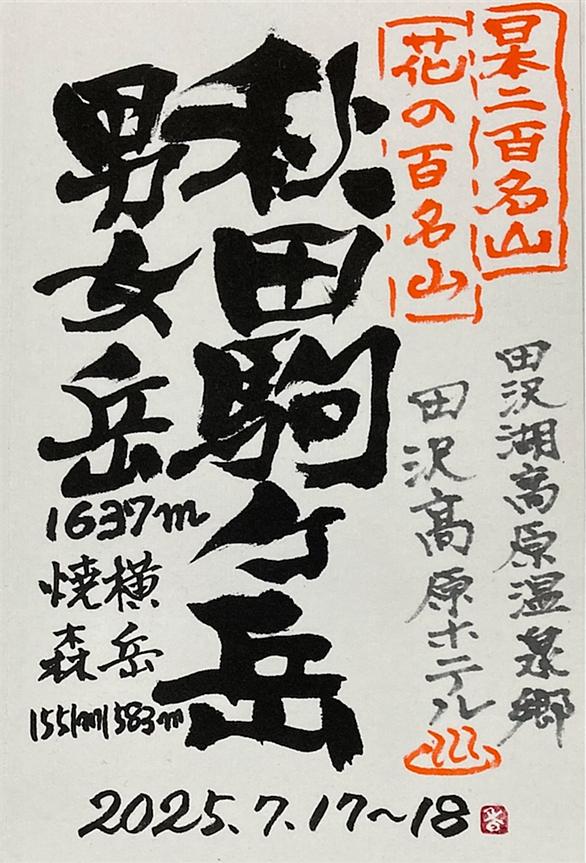 日本二百名山
花の百名山
田沢湖高原温泉郷
田沢高原ホテル
秋田駒ヶ岳
男女岳
1637m
横岳
1583m
焼森
1551m
2025.7.17～18